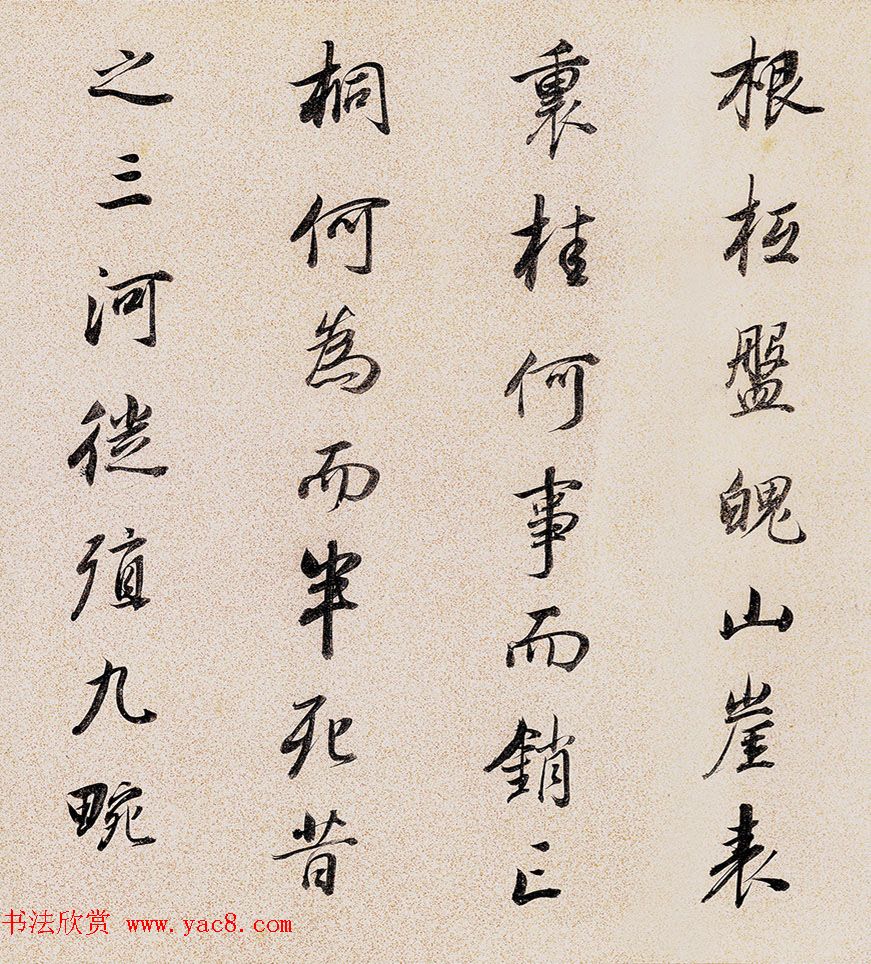 根柢盤魄山崖表
裏桂何事而銷亡
桐何為而半死昔
之三河徙殖九畹
书法欣赏 www.yac8.com